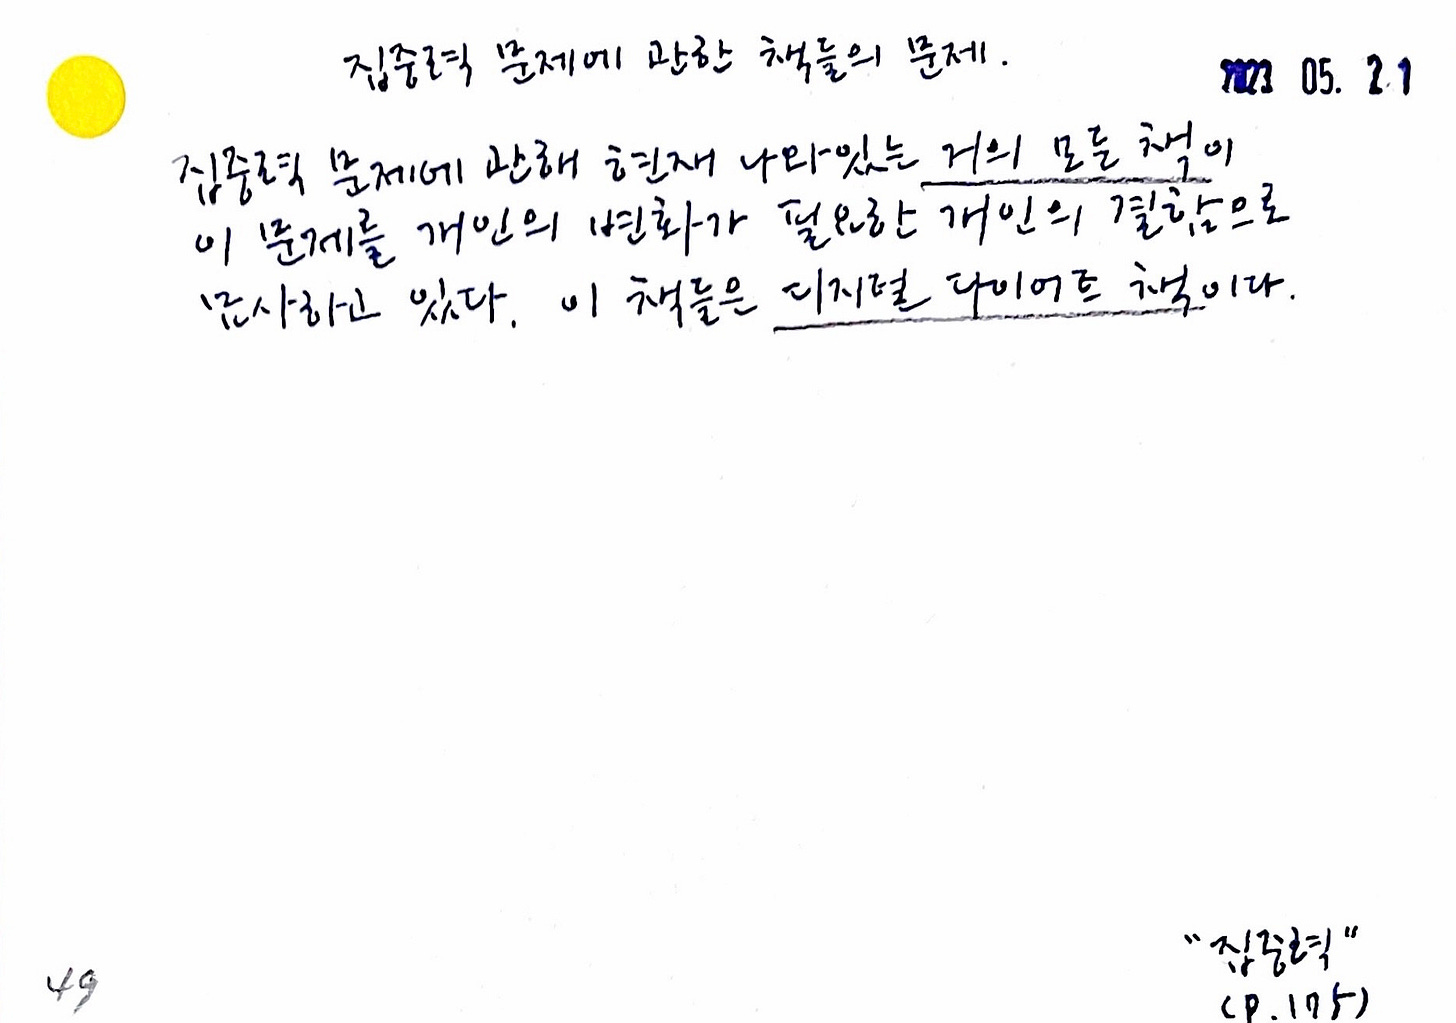 집중력 문제에 관한 책들의 문제.
2023 05. 21
집중력 문제에 관해 현재 나와있는 거의 모든 책이
이 문제를 개인의 변화가 필요한 개인의 결함으로
묘사하고 있다. 이 책들은 디지털 다이어트 책이다.
"집중력"
(P.175)
49